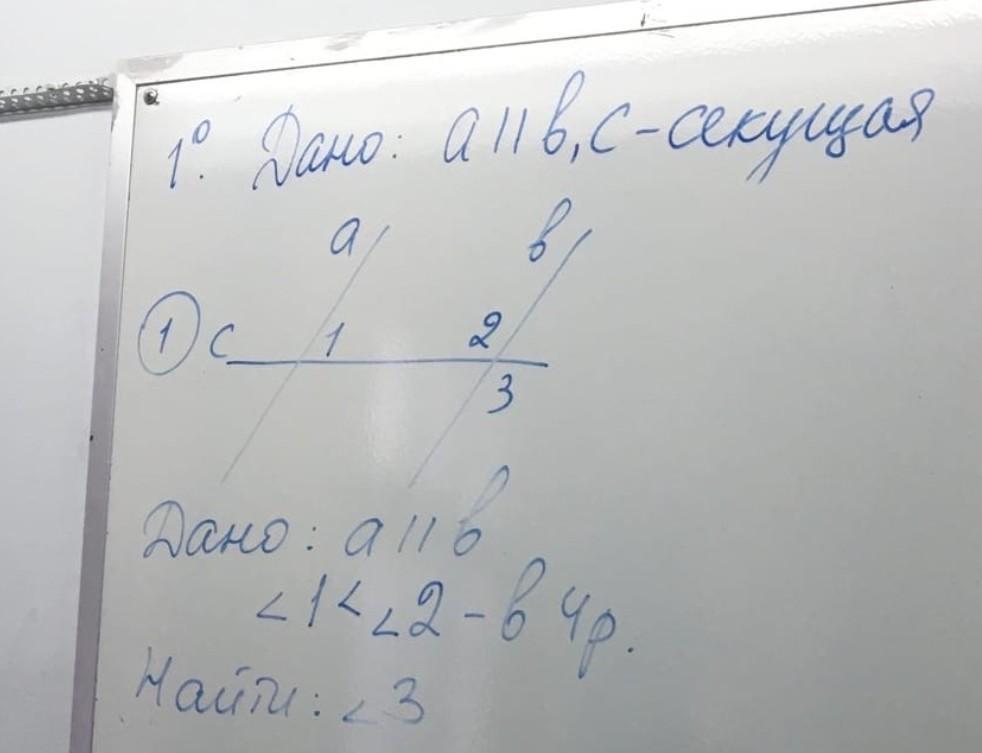 1°. Дано: a || b, c - секущая
a b
① c 1 2
3
Дано: a || b
∠1 < ∠2 - в 4р.
Найти: ∠3